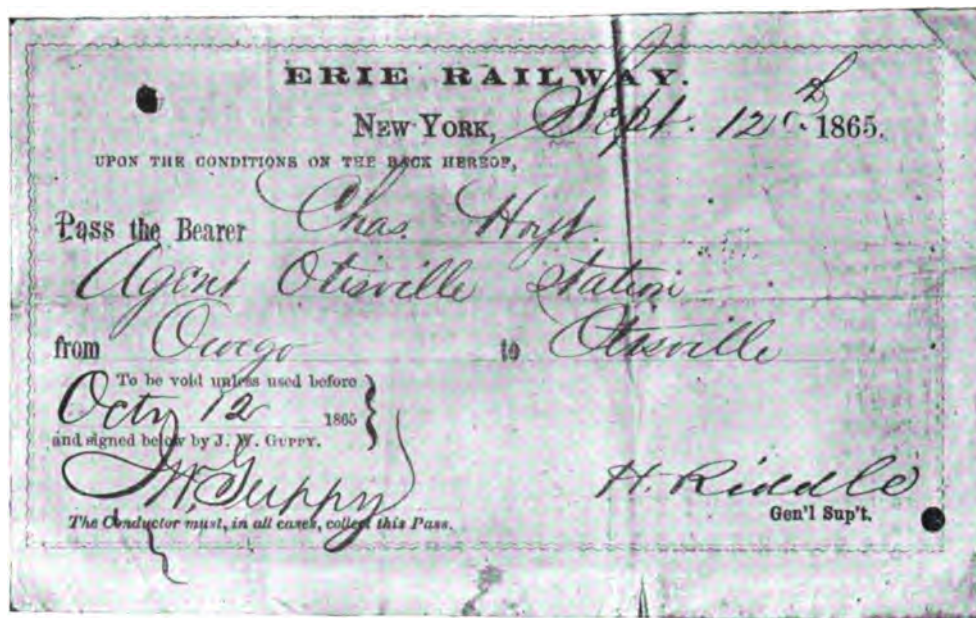 ERIE RAILWAY.
NEW YORK, Sept. 12th 1865.
UPON THE CONDITIONS ON THE BACK HEREOF,
Pass the Bearer Chas. Hoyt.
Agent Otisville Station
from Owego to Otisville
To be void unless used before
Octr 12 1865
and signed below by J. W. GUPPY.
J W. Guppy
H. Riddle
The Conductor must, in all cases, collect this Pass.
Gen'l Sup't.